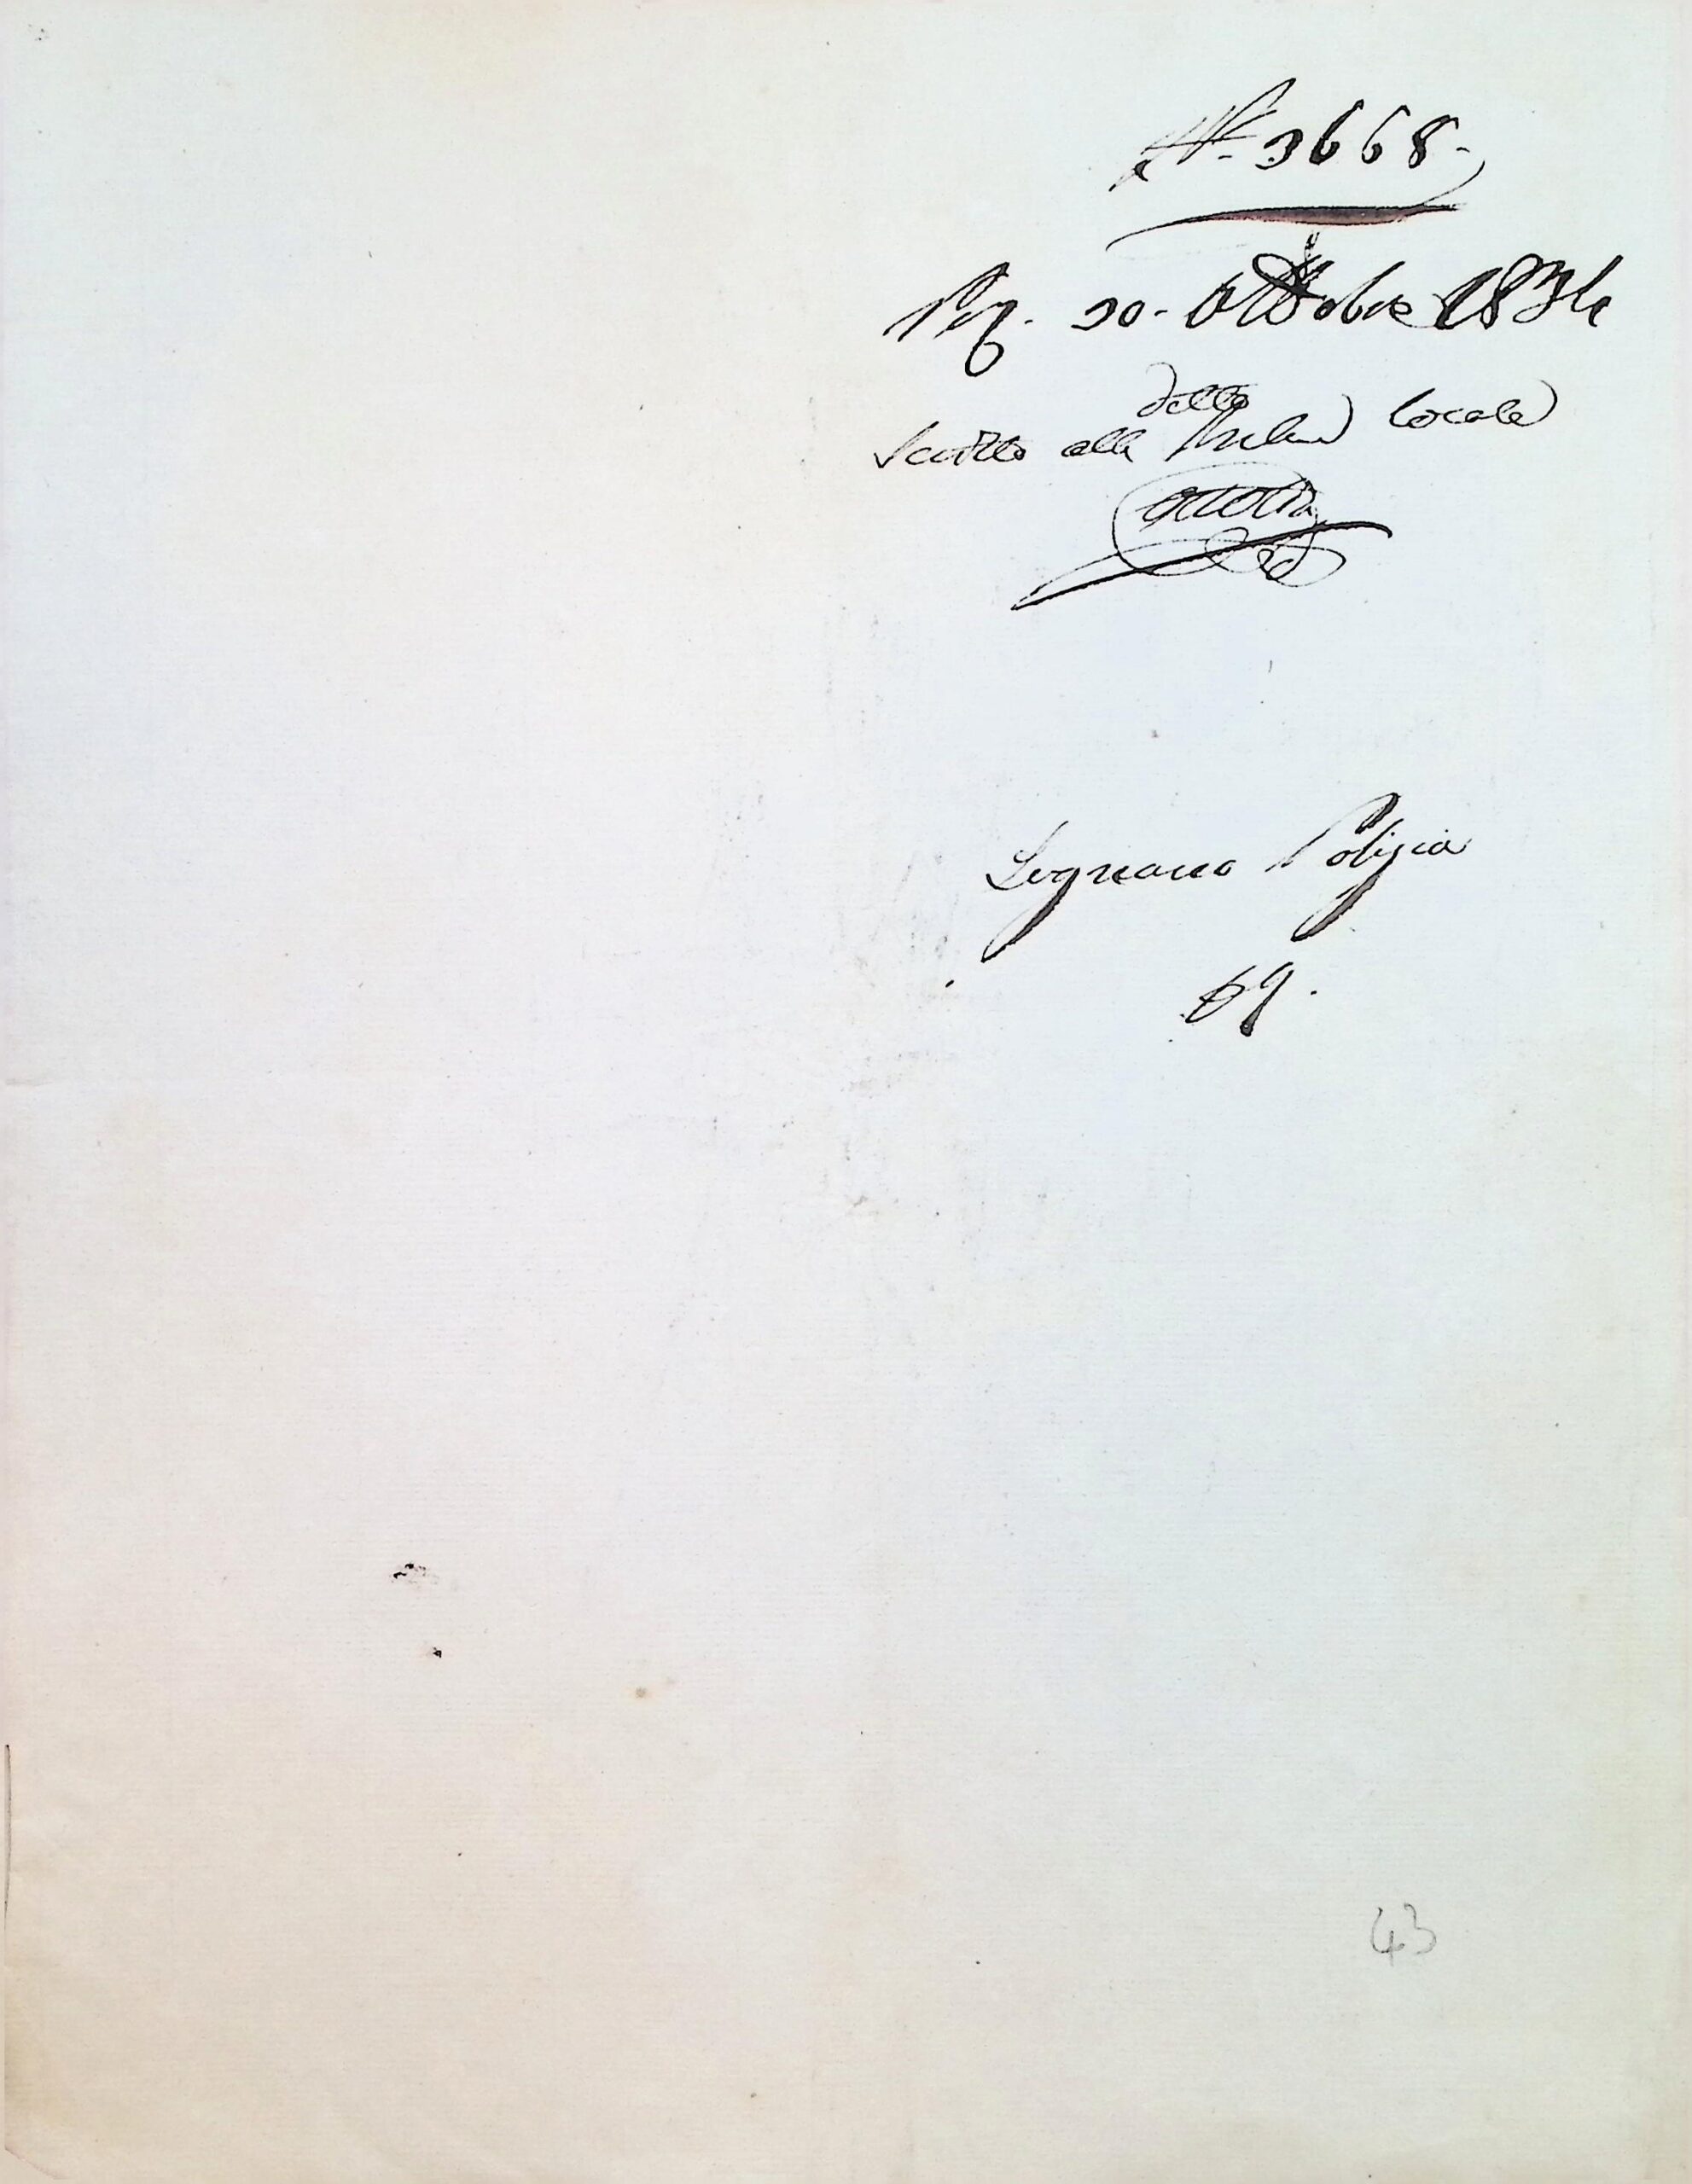 N. 3668.
30. Ottobre 1834
detto
Scritto alla locale
Legnano Polizia
69.
43